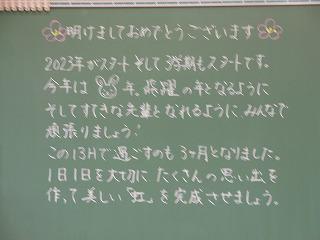 明けましておめでとうございます
2023年がスタート そして3学期もスタートです。
今年は 年。飛躍の年となるように
そしてすてきな先輩となれるように みんなで
頑張りましょう!
この13Hで過ごすのも3ヶ月となりました。
1日1日を大切に たくさんの思い出を
作って美しい「虹」を完成させましょう。